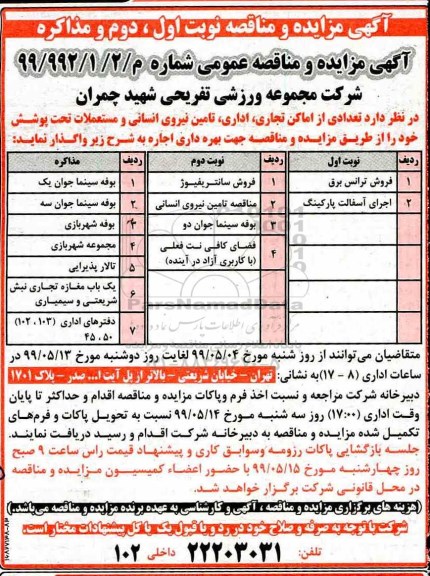 آگهی مزایده و مناقصه نوبت اول ، دوم و مذاکره
آگهی مزایده و مناقصه عمومی شماره م/۲/ ۹۹/۹۹۲/۱
شرکت مجموعه ورزشی تفریحی شهید چمران
در نظر دارد تعدادی از اماکن تجاری، اداری، تامین نیروی انسانی و مستعملات تحت پوشش
خود را از طریق مزایده و مناقصه جهت بهره داری اجاره به شرح زیر واگذار نماید:
ردیف نوبت اول ردیف نوبت دوم ردیف مذاکره
۱ فروش ترانس برق ۱ فروش سانتریفیوژ ۱ بوفه سینما جوان یک
۲ اجرای آسفالت پارکینگ ۲ مناقصه تامین نیروی انسانی ۲ بوفه سینما جوان سه
۳ بوفه سینما جوان دو ۳ بوفه شهربازی
۴ فضای کافی نت فعلی (با کاربری آزاد در آینده) ۴ مجموعه شهربازی
۵ تالار پذیرایی
۶ یک باب مغازه تجاری نبش شریعتی و سیمیاری
۷ دفترهای اداری (۱۰۳، ۱۰۲) ۵۰ ، ۴۵
ParsNamadData
متقاضیان می‌توانند از روز شنبه مورخ ۹۹/۰۵/۰۴ لغایت روز دوشنبه مورخ ۹۹/۰۵/۱۳ در
ساعات اداری (۸ - ۱۷) به نشانی: تهران - خیابان شریعتی - بالاتر از پل آیت ا... صدر - پلاک ۱۷۰۱
دبیرخانه شرکت مراجعه و نسبت اخذ فرم وپاکات مزایده و مناقصه اقدام و حداکثر تا پایان
وقت اداری (۱۷:۰۰) روز سه شنبه مورخ ۹۹/۰۵/۱۴ نسبت به تحویل پاکات و فرم‌های
تکمیل شده مزایده و مناقصه به دبیرخانه شرکت اقدام و رسید دریافت نمایند.
جلسه بازگشایی پاکات رزومه وسوابق کاری و پیشنهاد قیمت راس ساعت ۹ صبح
روز چهارشنبه مورخ ۹۹/۰۵/۱۵ با حضور اعضاء کمیسیون مزایده و مناقصه
در محل قانونی شرکت برگزار خواهد شد.
(هزینه های برگزاری مزایده و مناقصه ، آگهی و کارشناسی به عهده برنده مزایده و مناقصه می‌باشد.)
شرکت با توجه به صرفه و صلاح خود در رد و یا قبول یک یا کل پیشنهادات مختار است.
تلفن: ۲۲۲۰۳۰۳۱ داخلی ۱۰۲